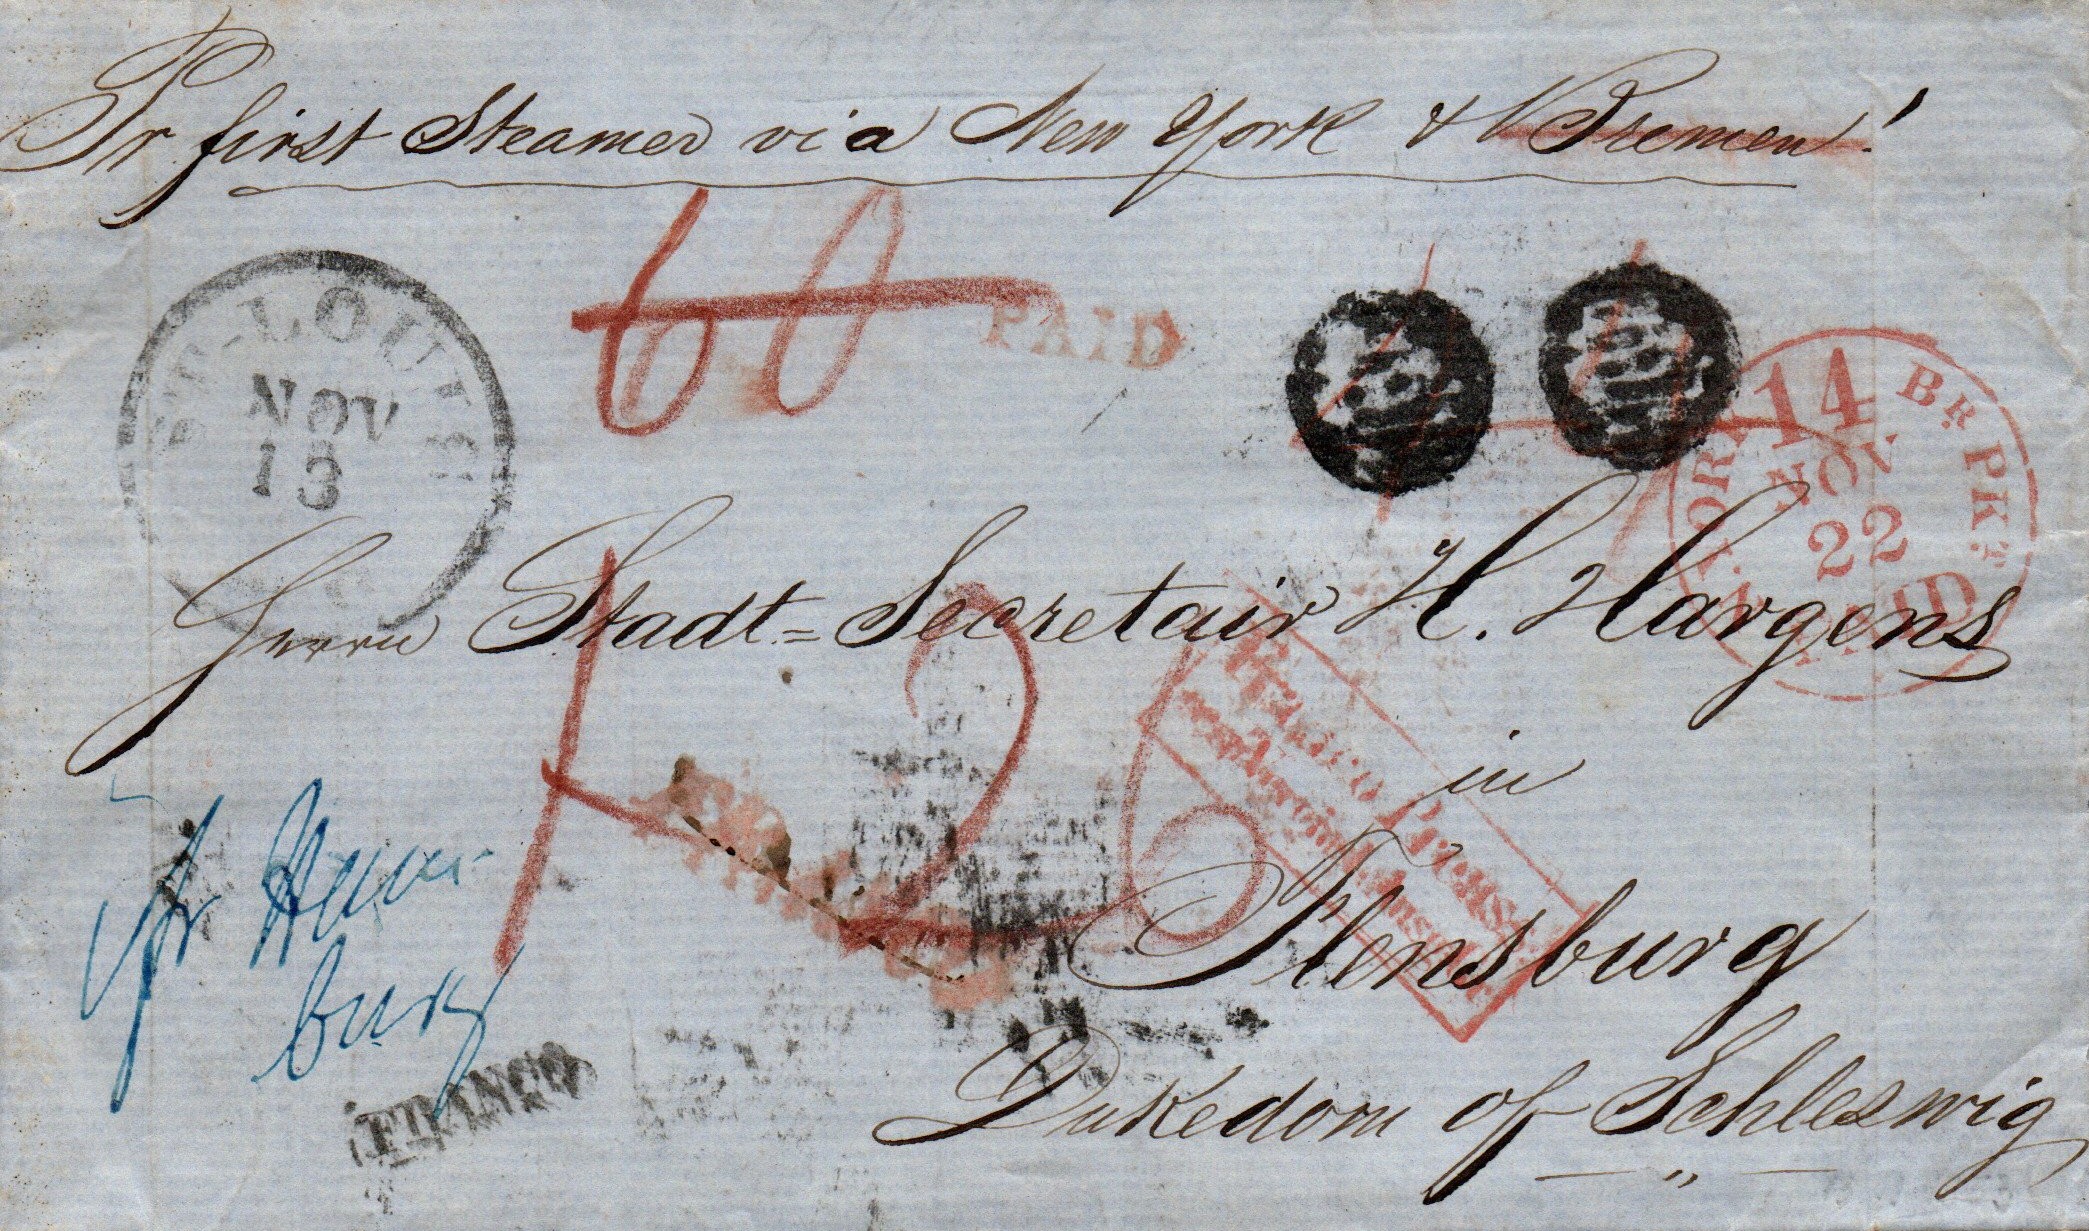 Pr first Steamer via New York & Bremen!
60
PAID
ST. LOUIS
NOV
13
14
BR. PKT.
NOV
22
PAID
Herrn Stadt=Secretair H. Hargens
in
Flensburg
Dukedom of Schleswig
1 26
Franco Preuss.
FRANCO